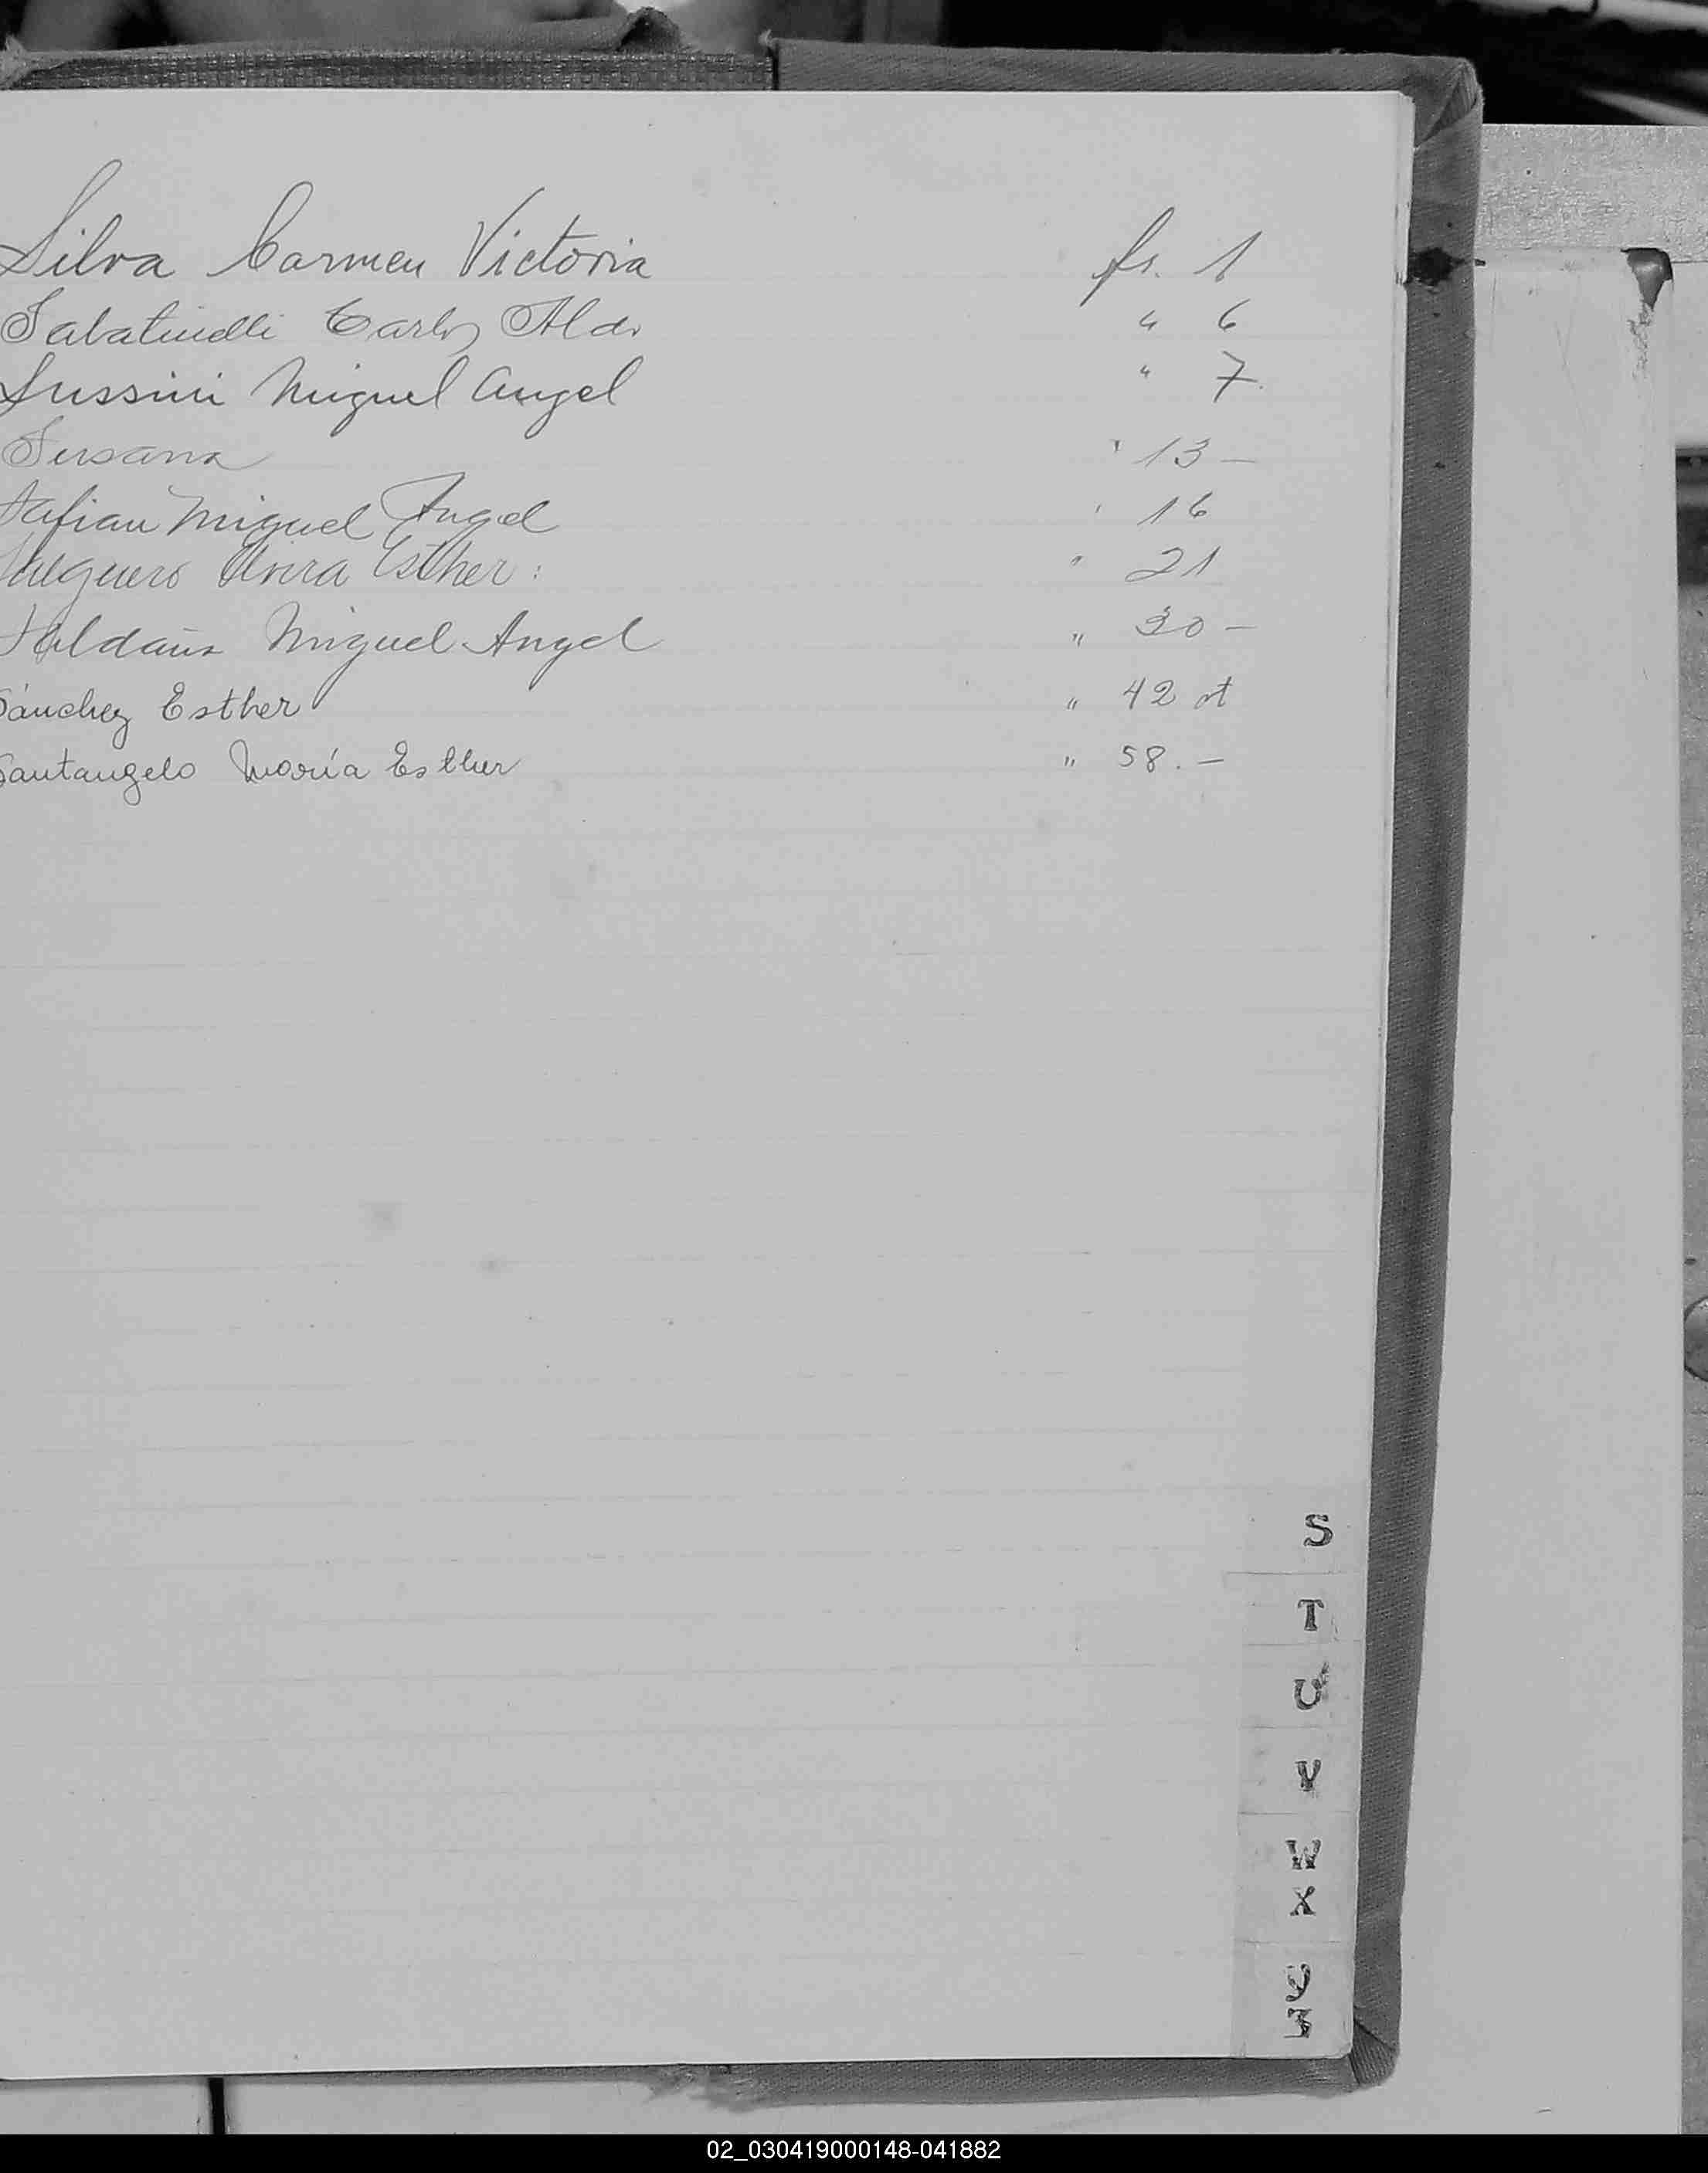 Silva Carmen Victoria fs. 1
Sabatinelli Carlos Aldo " 6
Sussini Miguel Angel " 7.
Susana " 13 —
Safian Miguel Angel " 16
Salguero Elvira Esther: " 21
Saldaña Miguel Angel " 30 —
Sánchez Esther " 42 vt
Santangelo María Esther " 58. —
S
T
U
V
W
X
Y
Z
02_030419000148-041882